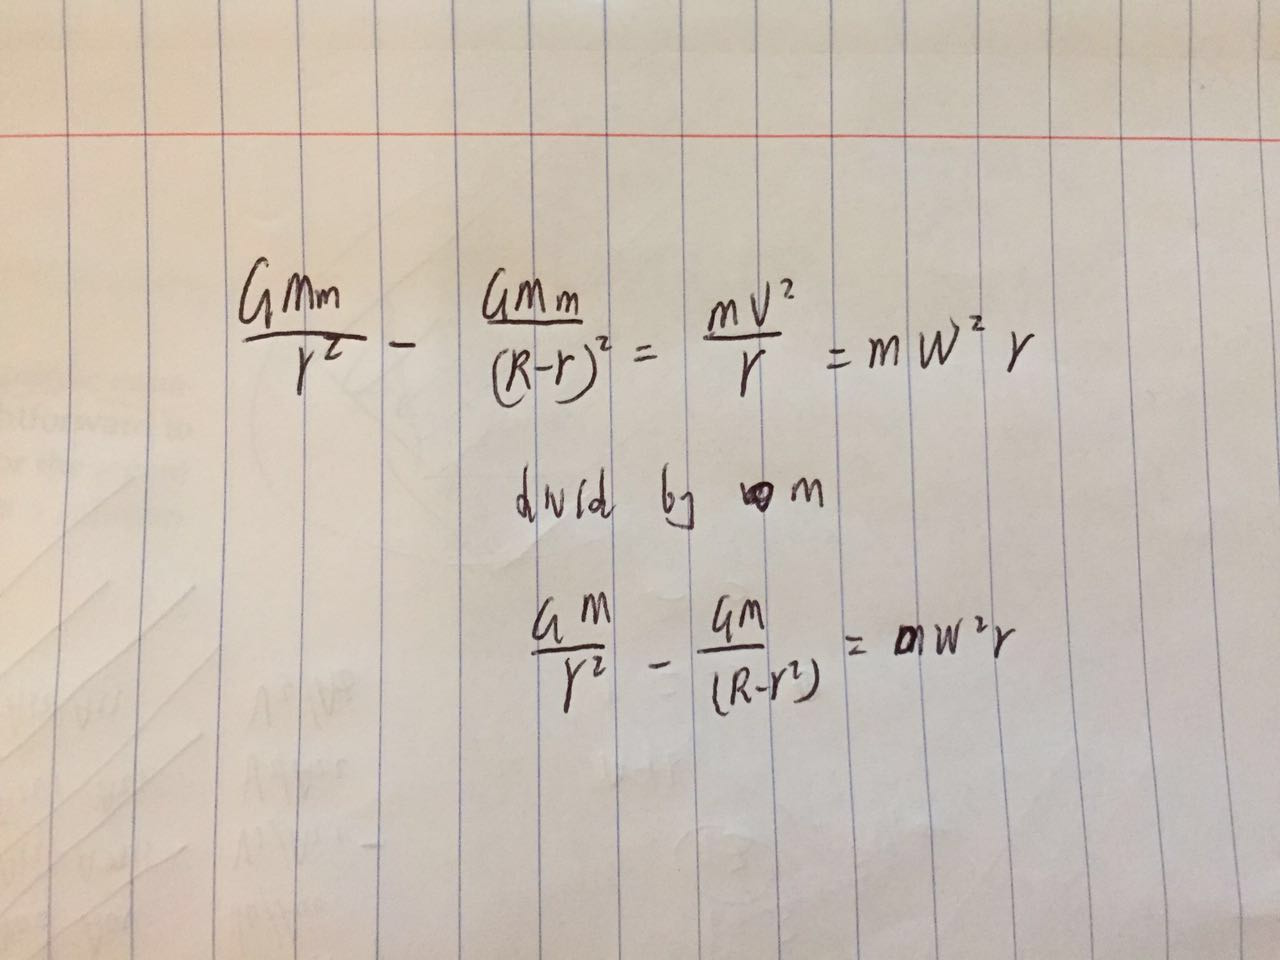 GMm/r² - GMm/(R-r)² = mV²/r = mW²r
divid by m
GM/r² - GM/(R-r²) = mW²r